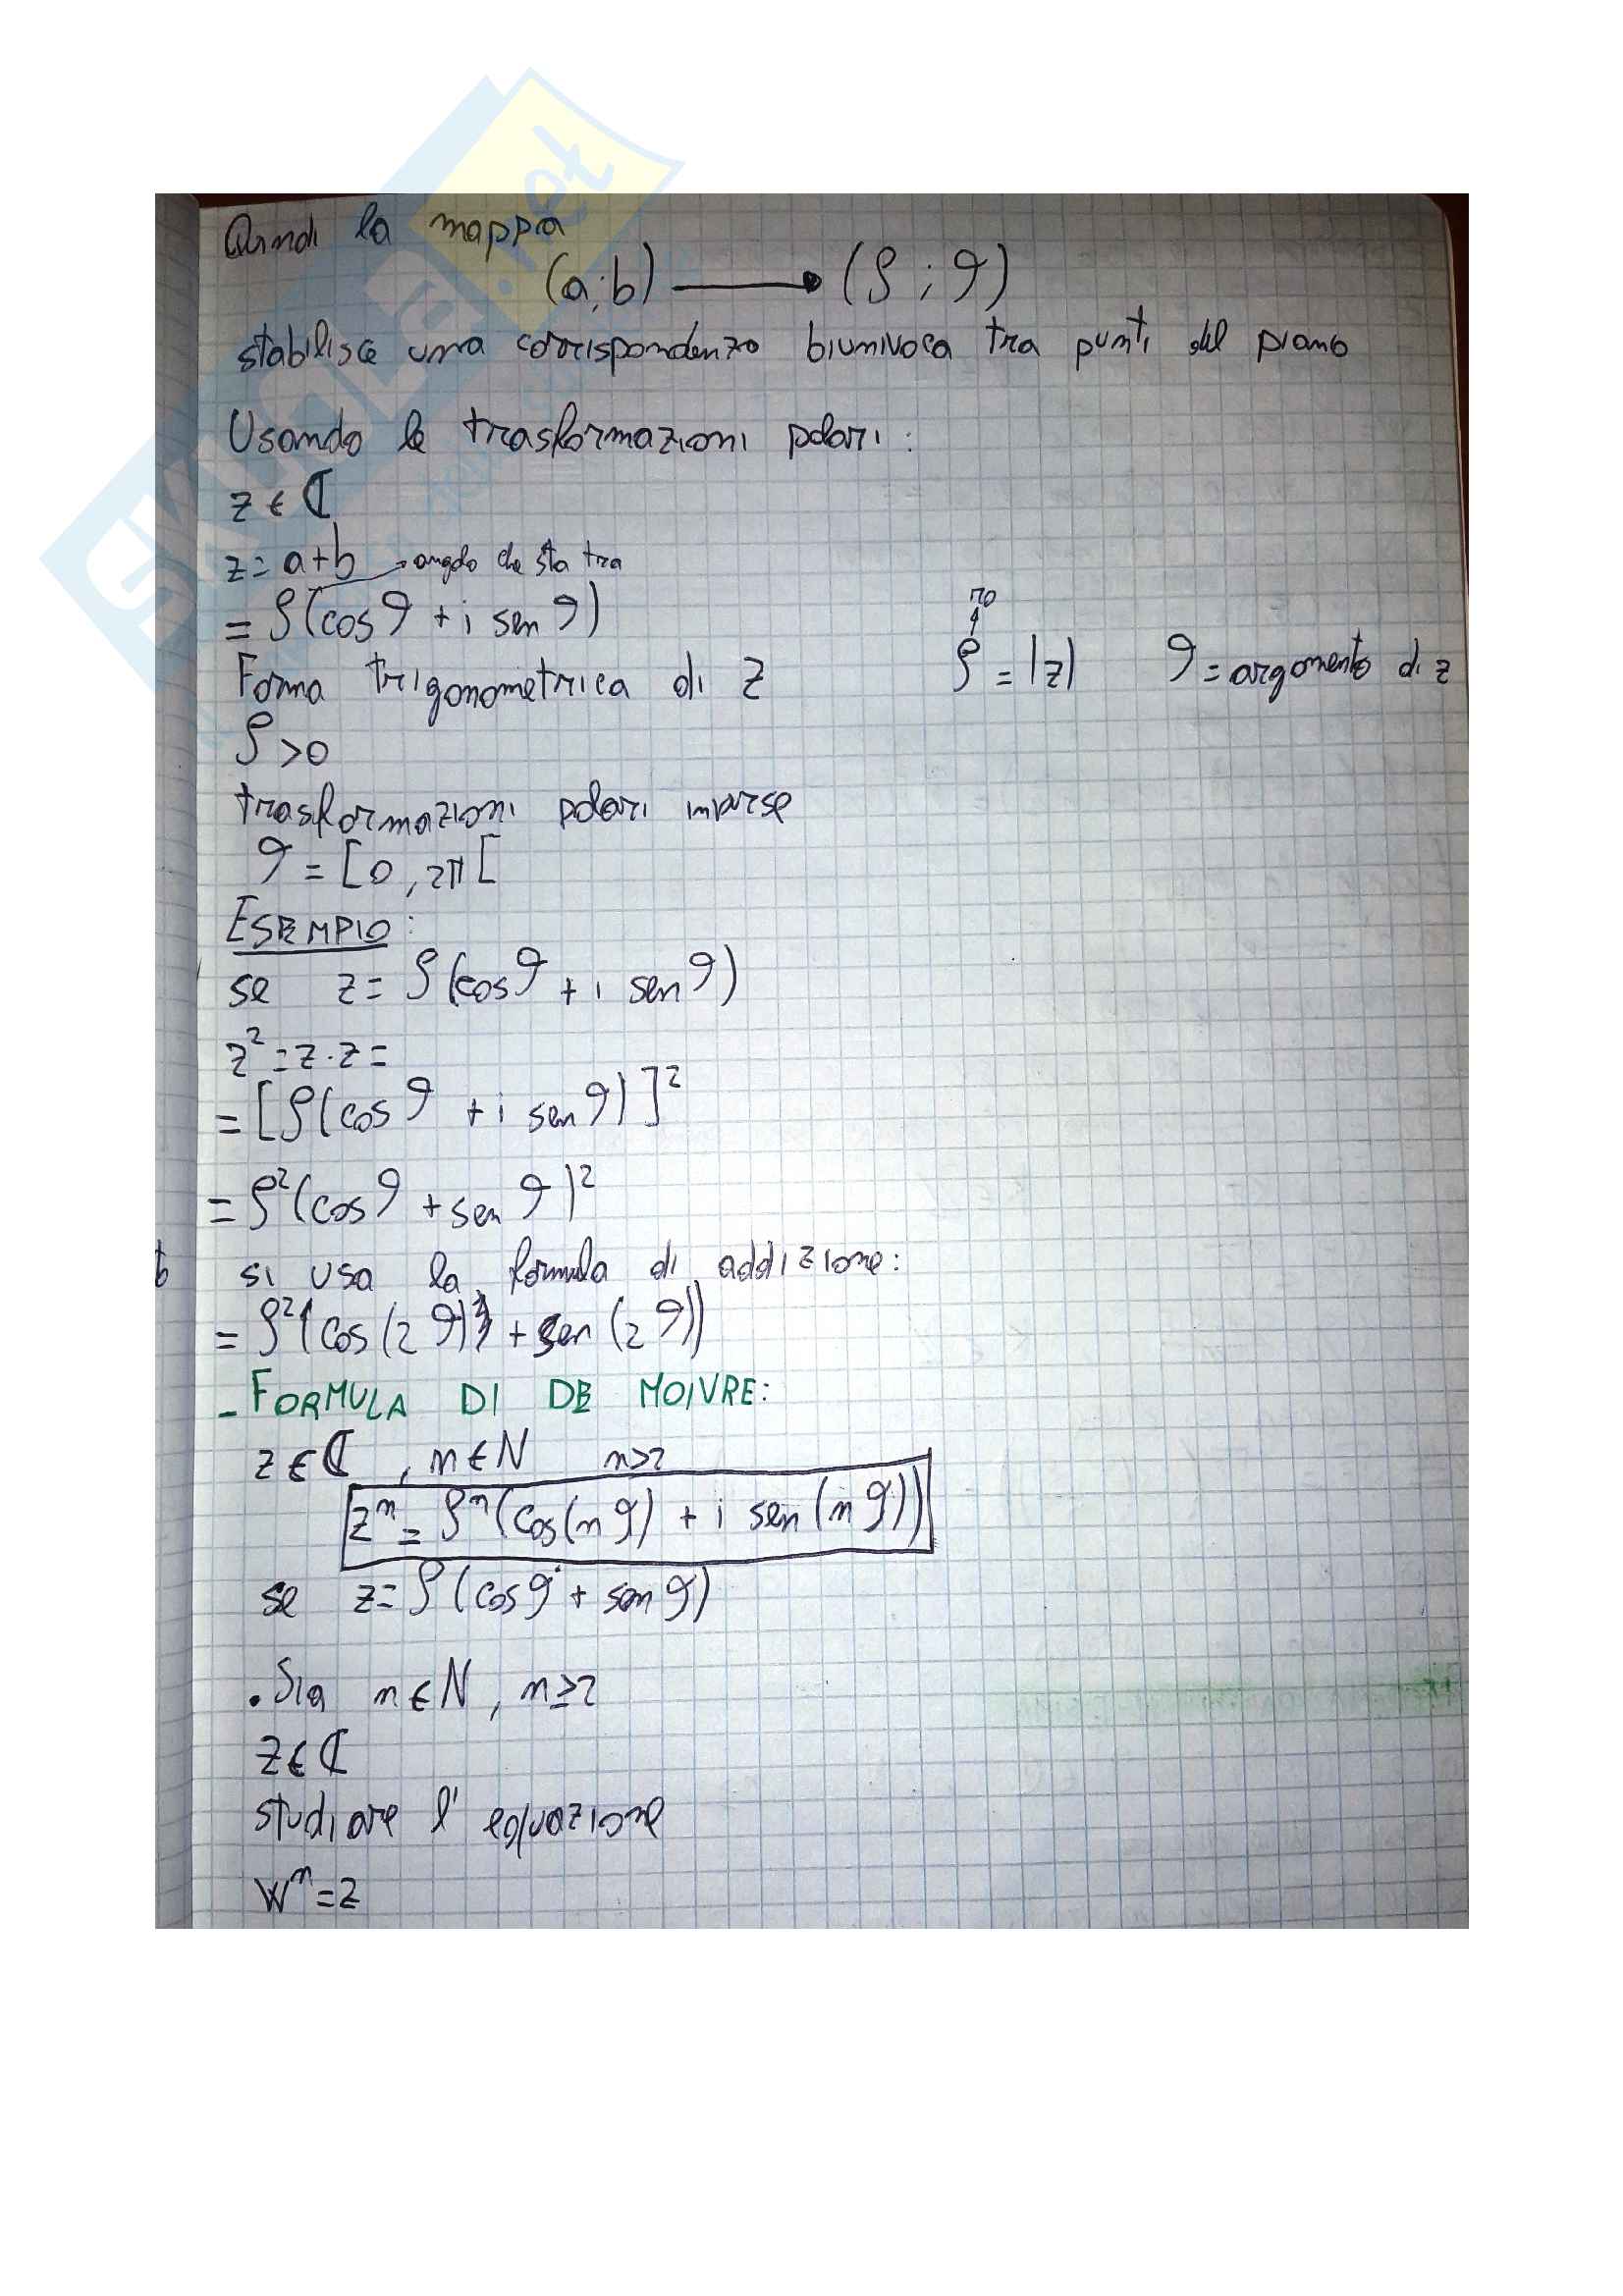 SKUOLA.net
Quindi la mappa
(a;b) → (ρ ; ϑ)
stabilisce una corrispondenza biunivoca tra punti del piano
Usando le trasformazioni polari:
z ∈ ℂ
z = a+b → angolo che sta tra
= ρ(cos ϑ + i sen ϑ)
ro
Forma trigonometrica di z ρ = |z| ϑ = argomento di z
ρ >0
trasformazioni polari inverse
ϑ = [0, 2π[
ESEMPIO:
se z = ρ(cos ϑ + i sen ϑ)
z² = z·z =
= [ρ(cos ϑ + i sen ϑ)]²
= ρ²(cos ϑ + sen ϑ)²
si usa la formula di addizione:
= ρ²(cos(2ϑ) + sen(2ϑ))
- FORMULA DI DE MOIVRE:
z ∈ ℂ, n ∈ N n>2
zⁿ = ρⁿ(cos(nϑ) + i sen(nϑ))
se z = ρ(cos ϑ + sen ϑ)
. Sia n ∈ N, n ≥ 2
z ∈ ℂ
studiare l' equazione
wⁿ = z